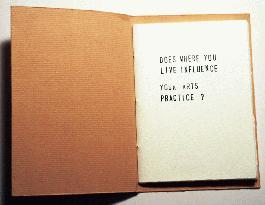 DOES WHERE YOU
LIVE INFLUENCE
YOUR ARTS
PRACTICE ?